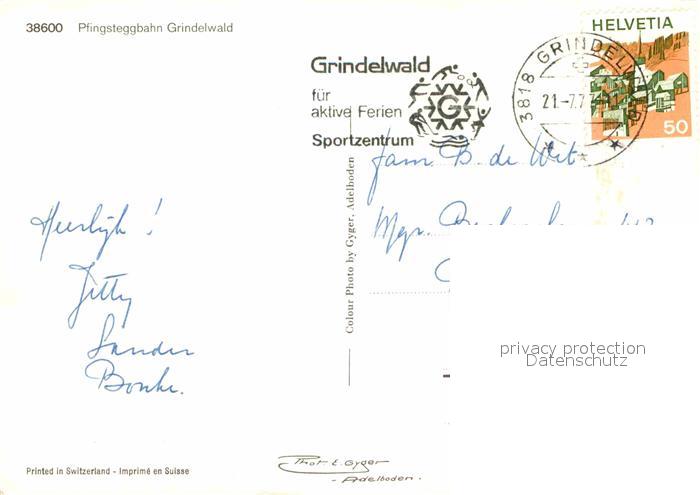 38600 Pfingsteggbahn Grindelwald
Grindelwald
für
aktive Ferien
Sportzentrum
G
3818 GRINDELWALD
21.-7.7
HELVETIA
50
Fam. B. de Wit
Mgr.
Heerlijk!
Jetty
Sander
Bonke.
Colour Photo by Gyger, Adelboden
privacy protection
Datenschutz
Printed in Switzerland - Imprimé en Suisse
Phot. E. Gyger
- Adelboden.